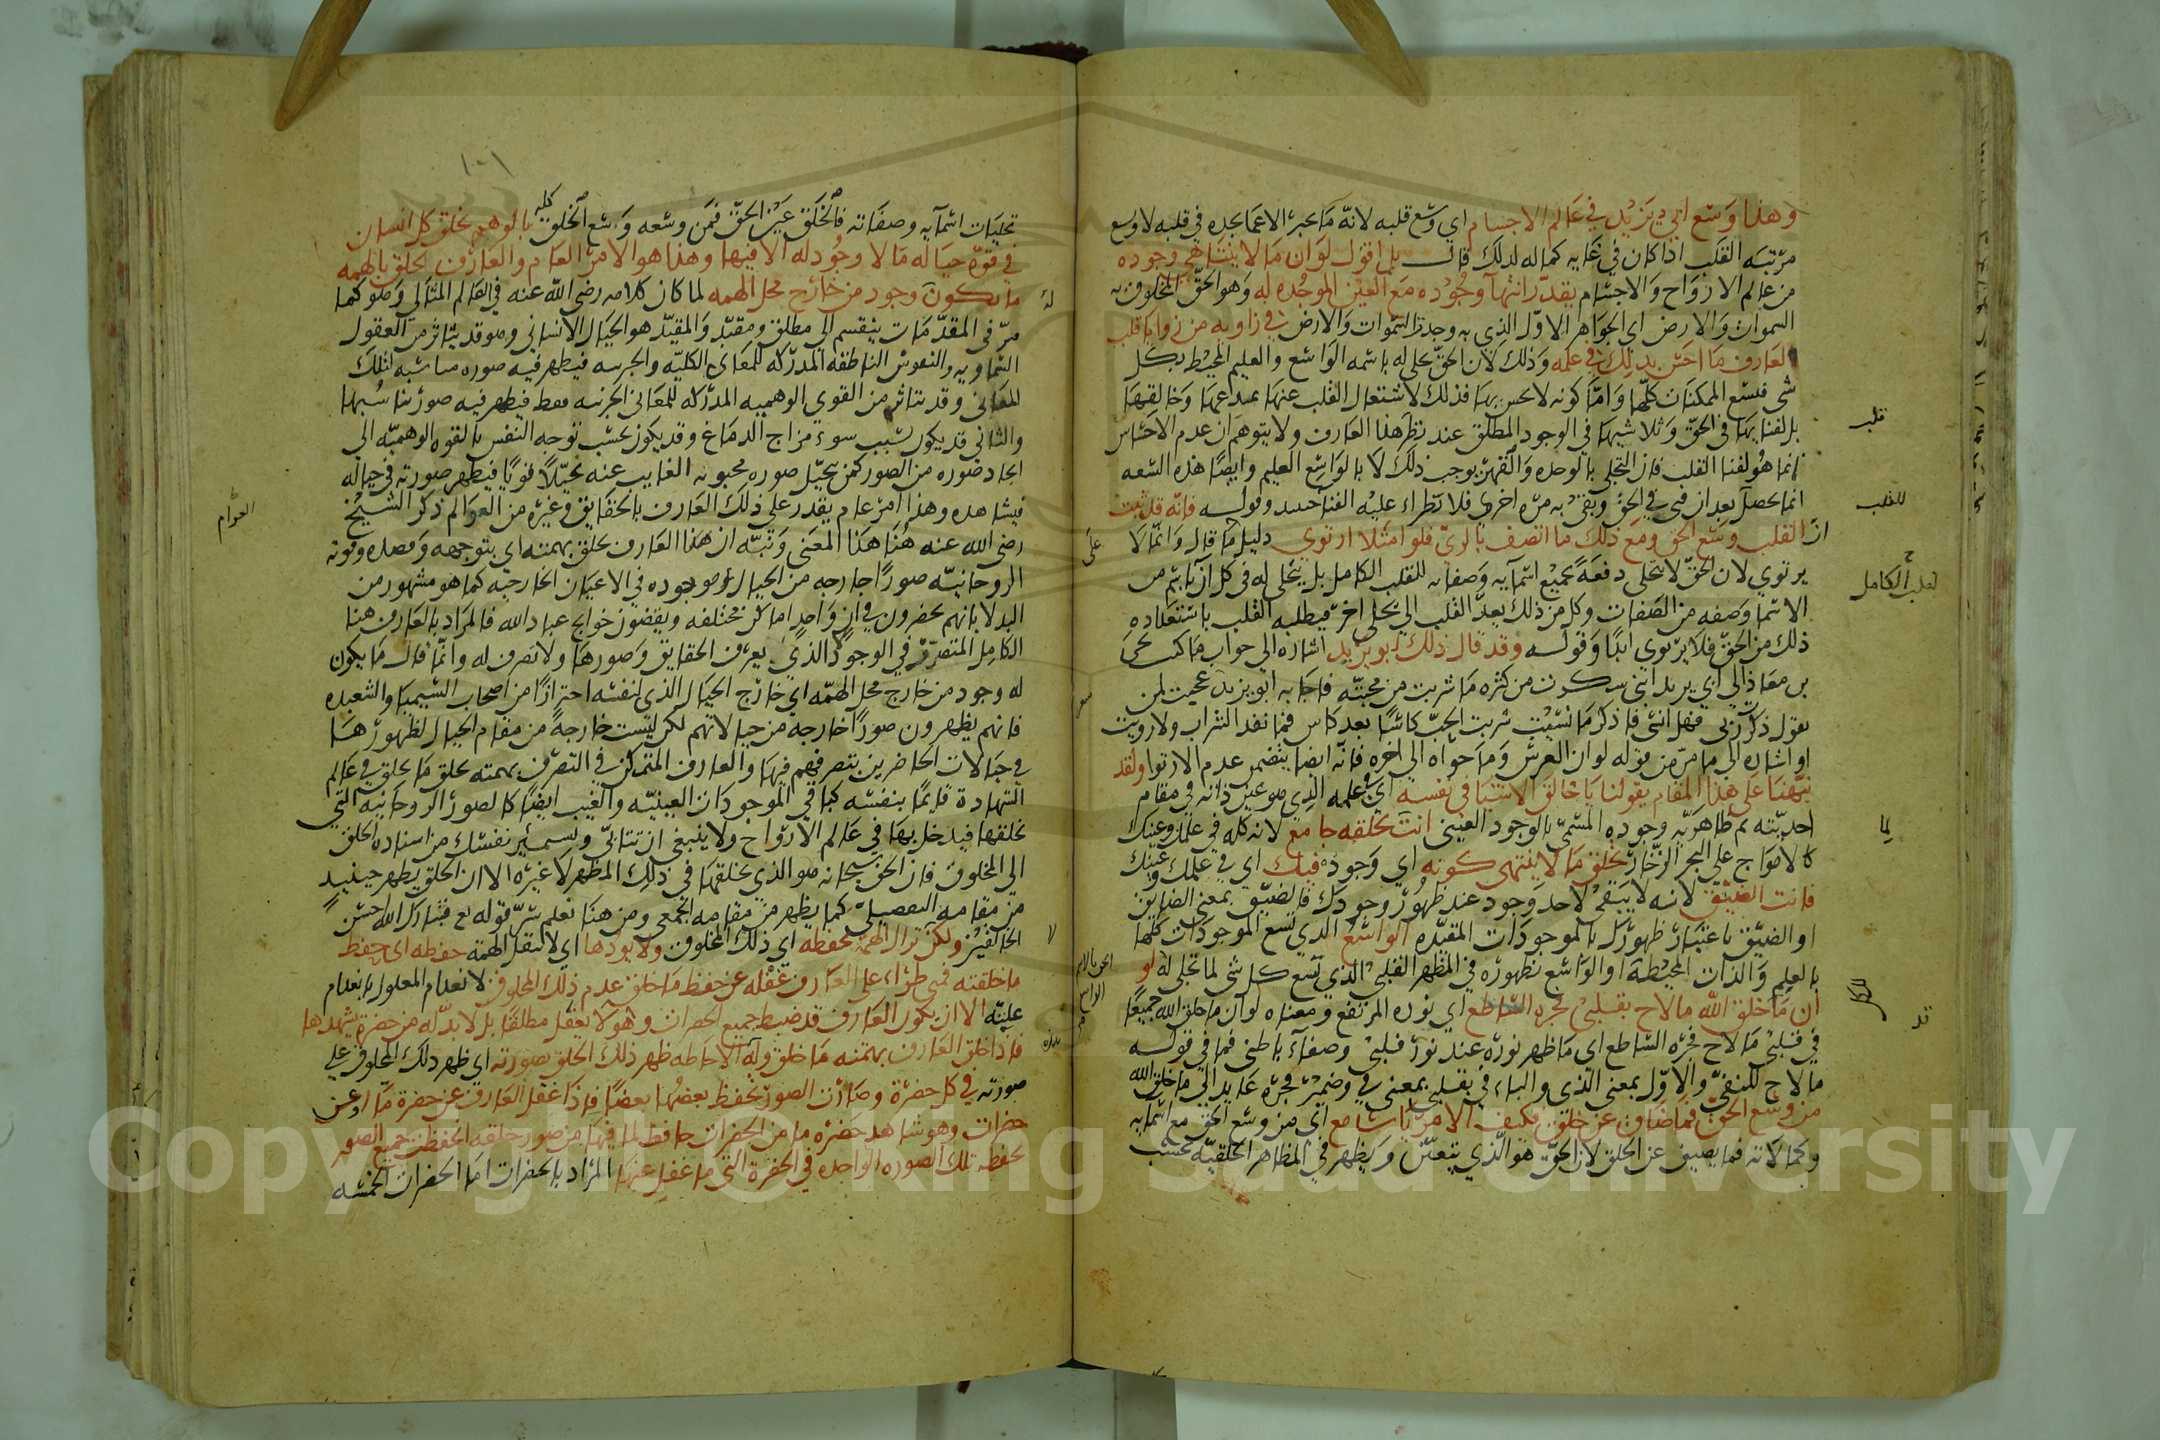 وهذا وسع ابي يزيد في عالم الاجسام اي وسع قلبه لانه ما يخبر الا عما يجده في قلبه لا وسع
مرتبه القلب اذا كان في غايه كماله لذلك قال بل اقول لو ان ما لا يتناهى وجوده
من عالم الارواح والاجسام يقدر انتهآ وجوده مع العين الموجده له وهو الحق المخلوق به
السموات والارض اي الجواهر الاول الذي به وجدت السموات والارض في زاويه من زوايا قلب
العارف ما احس بذلك في علمه وذلك لان الحق تجلى له باسمه الواسع والعليم المحيط بكل
شي فتسع الممكنات كلها واما كونه لا يحس بها فذلك لاشتغال القلب عنها بمبدعها وخالقها
بل لفنائها في الحق وتلاشيها في الوجود المطلق عند نظر هذا العارف ولا يتوهم ان عدم الاحساس
انما هو لفنا القلب فان التجلي بالوحده والقهر يوجب ذلك لا بالواسع العليم وايضا هذه السعه
انما تحصل بعد ان فني في الحق وبقي به مره اخرى فلا تطراء عليه الفنا حينيذ وقوله فانه قد ثبت
ان القلب وسع الحق ومع ذلك ما اتصف بالري فلو امتلا ارتوى دليل ما قال وانما لا
يرتوي لان الحق لا يتجلى دفعة بجميع اسمآيه وصفاته للقلب الكامل بل يتجلى له في كل آن باسم من
الاسما وصفه من الصفات وكل من ذلك يعد القلب الى تجلي اخر فيطلبه القلب باستعداده
ذلك من الحق فلا يرتوي ابدا وقوله وقد قال ذلك ابو يزيد اشاره الى جواب ما كتب يحيى
بن معاذ الى ابي يزيد اني سكرت من كثره ما شربت من محبته فاجابه ابو يزيد عجبت لمن
يقول ذكرت ربي فهل انسى فاذكر ما نسيت شربت الحب كاسا بعد كاس فما نفد الشراب ولا رويت
او اشاره الى ما مر من قوله لو ان العرش وما حواه الى اخره فانه ايضا يتضمن عدم الارتوا ولقد
نبهنا على هذا المقام بقولنا يا خالق الاشيا في نفسه اي في علمه الذي هو عين ذاته في مقام
احديته ثم ظاهريه وجوده المسمى بالوجود العيني انت لما تخلقه جامع لانه كله في علمك وعينك
كالامواج على البحر الزخار تخلق ما لا ينتهى كونه اي وجوده فيك اي في علمك وعينك
فانت الضيق لانه لا يبقى لاحد وجود عند ظهور وجودك فالضيق بمعنى الضايق
او الضيق باعتبار ظهورك بالموجودات المقيده الواسع الذي تسع الموجودات كلها
بالعلم والذات المحيطة او الواسع بظهوره في المظهر القلبي الذي تسع كل شي لما تجلى له لو
ان ما خلق الله ما لاح بقلبي فجره الساطع اي نوره المرتفع ومعناه لو ان ما خلق الله جميعا
في قلبي ما لاح فجره الساطع اي ما ظهر نوره عند نور قلبي وصفاء باطني فما في قوله
ما لاح للنفي والاول بمعنى الذي والباء في بقلبي بمعنى في وضمير فجره عايد الى ما خلق الله
من وسع الحق فما ضاق عن خلق فكيف الامر يا سامع اي من وسع الحق مع اسمايه
وكمالاته فما يضيق عن الخلق لان الحق هو الذي يتعين ويظهر في المظاهر الخلقيه بحسب
قلب
للقلب
للقلب الكامل
لما
الكل
تجليات اسمآيه وصفاته فالخلق عين الحق فمن وسعه وسع الخلق كله بالوهم يخلق كل انسان
في قوة خياله ما لا وجود له الا فيها وهذا هو الامر العام والعارف يخلق بالهمه
ما يكون له وجود من خارج محل الهمه لما كان كلامه رضي الله عنه في العالم المثالي وهو كما
مر في المقدمات ينقسم الى مطلق ومقيد والمقيد هو الخيال الانساني وهو قد يتاثر من العقول
السماويه والنفوس الناطقه المدركه للمعاني الكليه والجزئيه فيظهر فيه صوره مناسبه لتلك
المعاني وقد يتاثر من القوى الوهميه المدركه للمعاني الجزئيه فقط فيظهر فيه صوره تناسبها
والثاني قد يكون بسبب سوء مزاج الدماغ وقد يكون بحسب توجه النفس بالقوه الوهميه الى
ايجاد صوره من الصور كمن يتخيل صوره محبوبه الغايب عنه تخيلا قويا فيظهر صورته في خياله
فيشاهده وهذا امر عام يقدر على ذلك العارف بالحقايق وغيره من العوام ذكر الشيخ
رضي الله عنه هنا هذا المعنى ونبه ان هذا العارف يخلق بهمته اي بتوجهه وقصده وقوته
الروحانيه صورا خارجه من الخيال موجوده في الاعيان الخارجيه كما هو مشهور من
البدلا بانهم يحضرون في ان واحد اماكن مختلفه ويقضون حوايج عباد الله فالمراد بالعارف هنا
الكامل المتصرف في الوجود لا الذي يعرف الحقايق وصورها ولا تصرف له وانما قال ما يكون
له وجود من خارج محل الهمه اي خارج الخيال الذي لنفسه احترازا من اصحاب السيميا والشعبده
فانهم يظهرون صورا خارجه من خيالاتهم لكن ليست خارجة من مقام الخيال لظهورها
في خيالات الحاضرين بتصرفهم فيها والعارف المتمكن في التصرف بهمته يخلق ما يخلق في عالم
الشهادة قايما بنفسه كباقي الموجودات العينيه والغيب ايضا كالصور الروحانيه التي
يخلقها فيدخل بها في عالم الارواح ولا ينبغي ان تتابى وتشمئز نفسك من اسناد الخلق
الى المخلوق فان الحق سبحانه هو الذي يخلقها في ذلك المظهر لا غيره الا ان الخلق يظهر حينيذ
من مقامه التفصيلي كما يظهر من مقامه الجمعي ومن هنا تعلم سر قوله تع فتبارك الله احسن
الخالقين ولكن لا تزال الهمة تحفظه اي ذلك المخلوق ولا يؤدها اي لا تثقل الهمة حفظه اي حفظ
ما خلقته فمتى طراء على العارف غفله عن حفظ ما خلق عدم ذلك المخلوق لانعدام المعلول بانعدام
علته الا ان يكون العارف قد ضبط جميع الحضرات وهو لا يغفل مطلقا بل لا بد له من حضره يشهدها
فاذا خلق العارف بهمته ما خلق وله الاحاطه ظهر ذلك الخلق بصورته اي ظهر ذلك المخلوق على
صورته في كل حضرة وصارت الصور تحفظ بعضها بعضا فاذا غفل العارف عن حضرة ما او عن
حضرات وهو شاهد حضره ما من الحضرات حافظ لما فيها من صور خلقه انحفظت جميع الصور
بحفظه تلك الصوره الواحده في الحضرة التي ما غفل عنها المراد بالحضرات اما الحضرات الخمسه
العوام